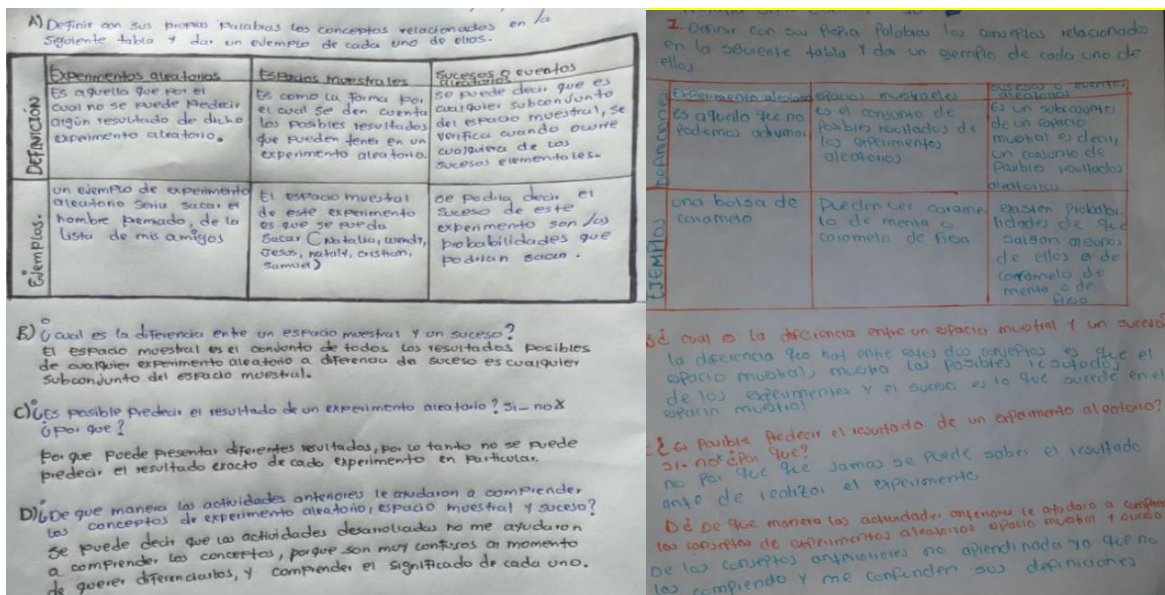 A) Definir con sus propias palabras los conceptos relacionados en la
siguiente tabla y dar un ejemplo de cada uno de ellos.
Experimentos aleatorios
Espacios muestrales
Sucesos o eventos
aleatorios
DEFINICIÓN
Es aquella que por el
cual no se puede predecir
algún resultado de dicho
experimento aleatorio.
Es como la forma por
el cual se den cuenta
los posibles resultados
que pueden tener en un
experimento aleatorio.
se puede decir que es
cualquier subconjunto
del espacio muestral, se
verifica cuando ocurre
cualquiera de los
sucesos elementales.
Ejemplos.
un ejemplo de experimento
aleatorio seria sacar el
hombre premado, de la
lista de mis amigos
El espacio muestral
de este experimento
es que se puedu
sacar (natalia, wendy,
Jesus, nataly, cristian,
samuel)
se podria decir el
suceso de este
experimento son las
probabilidades que
podrian sacar.
B) ¿cual es la diferencia entre un espacio muestral y un suceso?
El espacio muestral es el conjunto de todos los resultados posibles
de cualquier experimento aleatorio a diferencia de suceso es cualquier
subconjunto del espacio muestral.
C) ¿Es posible predecir el resultado de un experimento aleatorio? si_ no X
¿por que?
por que puede presentar diferentes resultados, por lo tanto no se puede
predecir el resultado exacto de cada experimento en particular.
D) ¿De que manera las actividades anteriores le ayudaron a comprender
los conceptos de experimento aleatorio, espacio muestral y suceso?
se puede decir que las actividades desarrolladas no me ayudaron
a comprender los conceptos, porque son muy confusos al momento
de querer diferenciarlos, y comprender el significado de cada uno.
1 Definir con sus Propia Palabras los conceptos relacionado
en la seguiente tabla y dar un ejemplo de cada uno de
ellos
Experimento aleatorio
espacios muestrales
sucesos o eventos
aleatorios
es aquello que no
Podemos adivinar
es el conjunto de
Posible resultados de
los experimentos
aleatorios
es un subconjunto
de un espacio
muestral es decir,
un conjunto de
Posibles resultados
aleatorios
EJEMPLOS
una bolsa de
caramelo
Pueden ser carame
lo de menta o
caramelo de fresa
existen Probabi
lidades de que
salgan algunos
de ellos o de
caramelo de
menta o de
fresa
¿ cual es la diferencia entre un espacio muestral y un suceso
la diferencia que hay entre estos dos conceptos es que el
espacio muestral, muestra los posibles resultados
de los experimentos y el suceso es lo que sucede en el
espacio muestral
¿ es posible Predecir el resultado de un experimento aleatorio?
si- no* ¿Por que?
no Por que que Jamas se Puede saber el resultado
ante de realizar el experimento
D ¿ De que manera las actividades anteriores le ayudaro a
los conceptos de experimentos aleatorios espacio muestral y suceso
De los conceptos anteriores no aprendi nada ya que no
los compiendo y me confunden sus definiciones